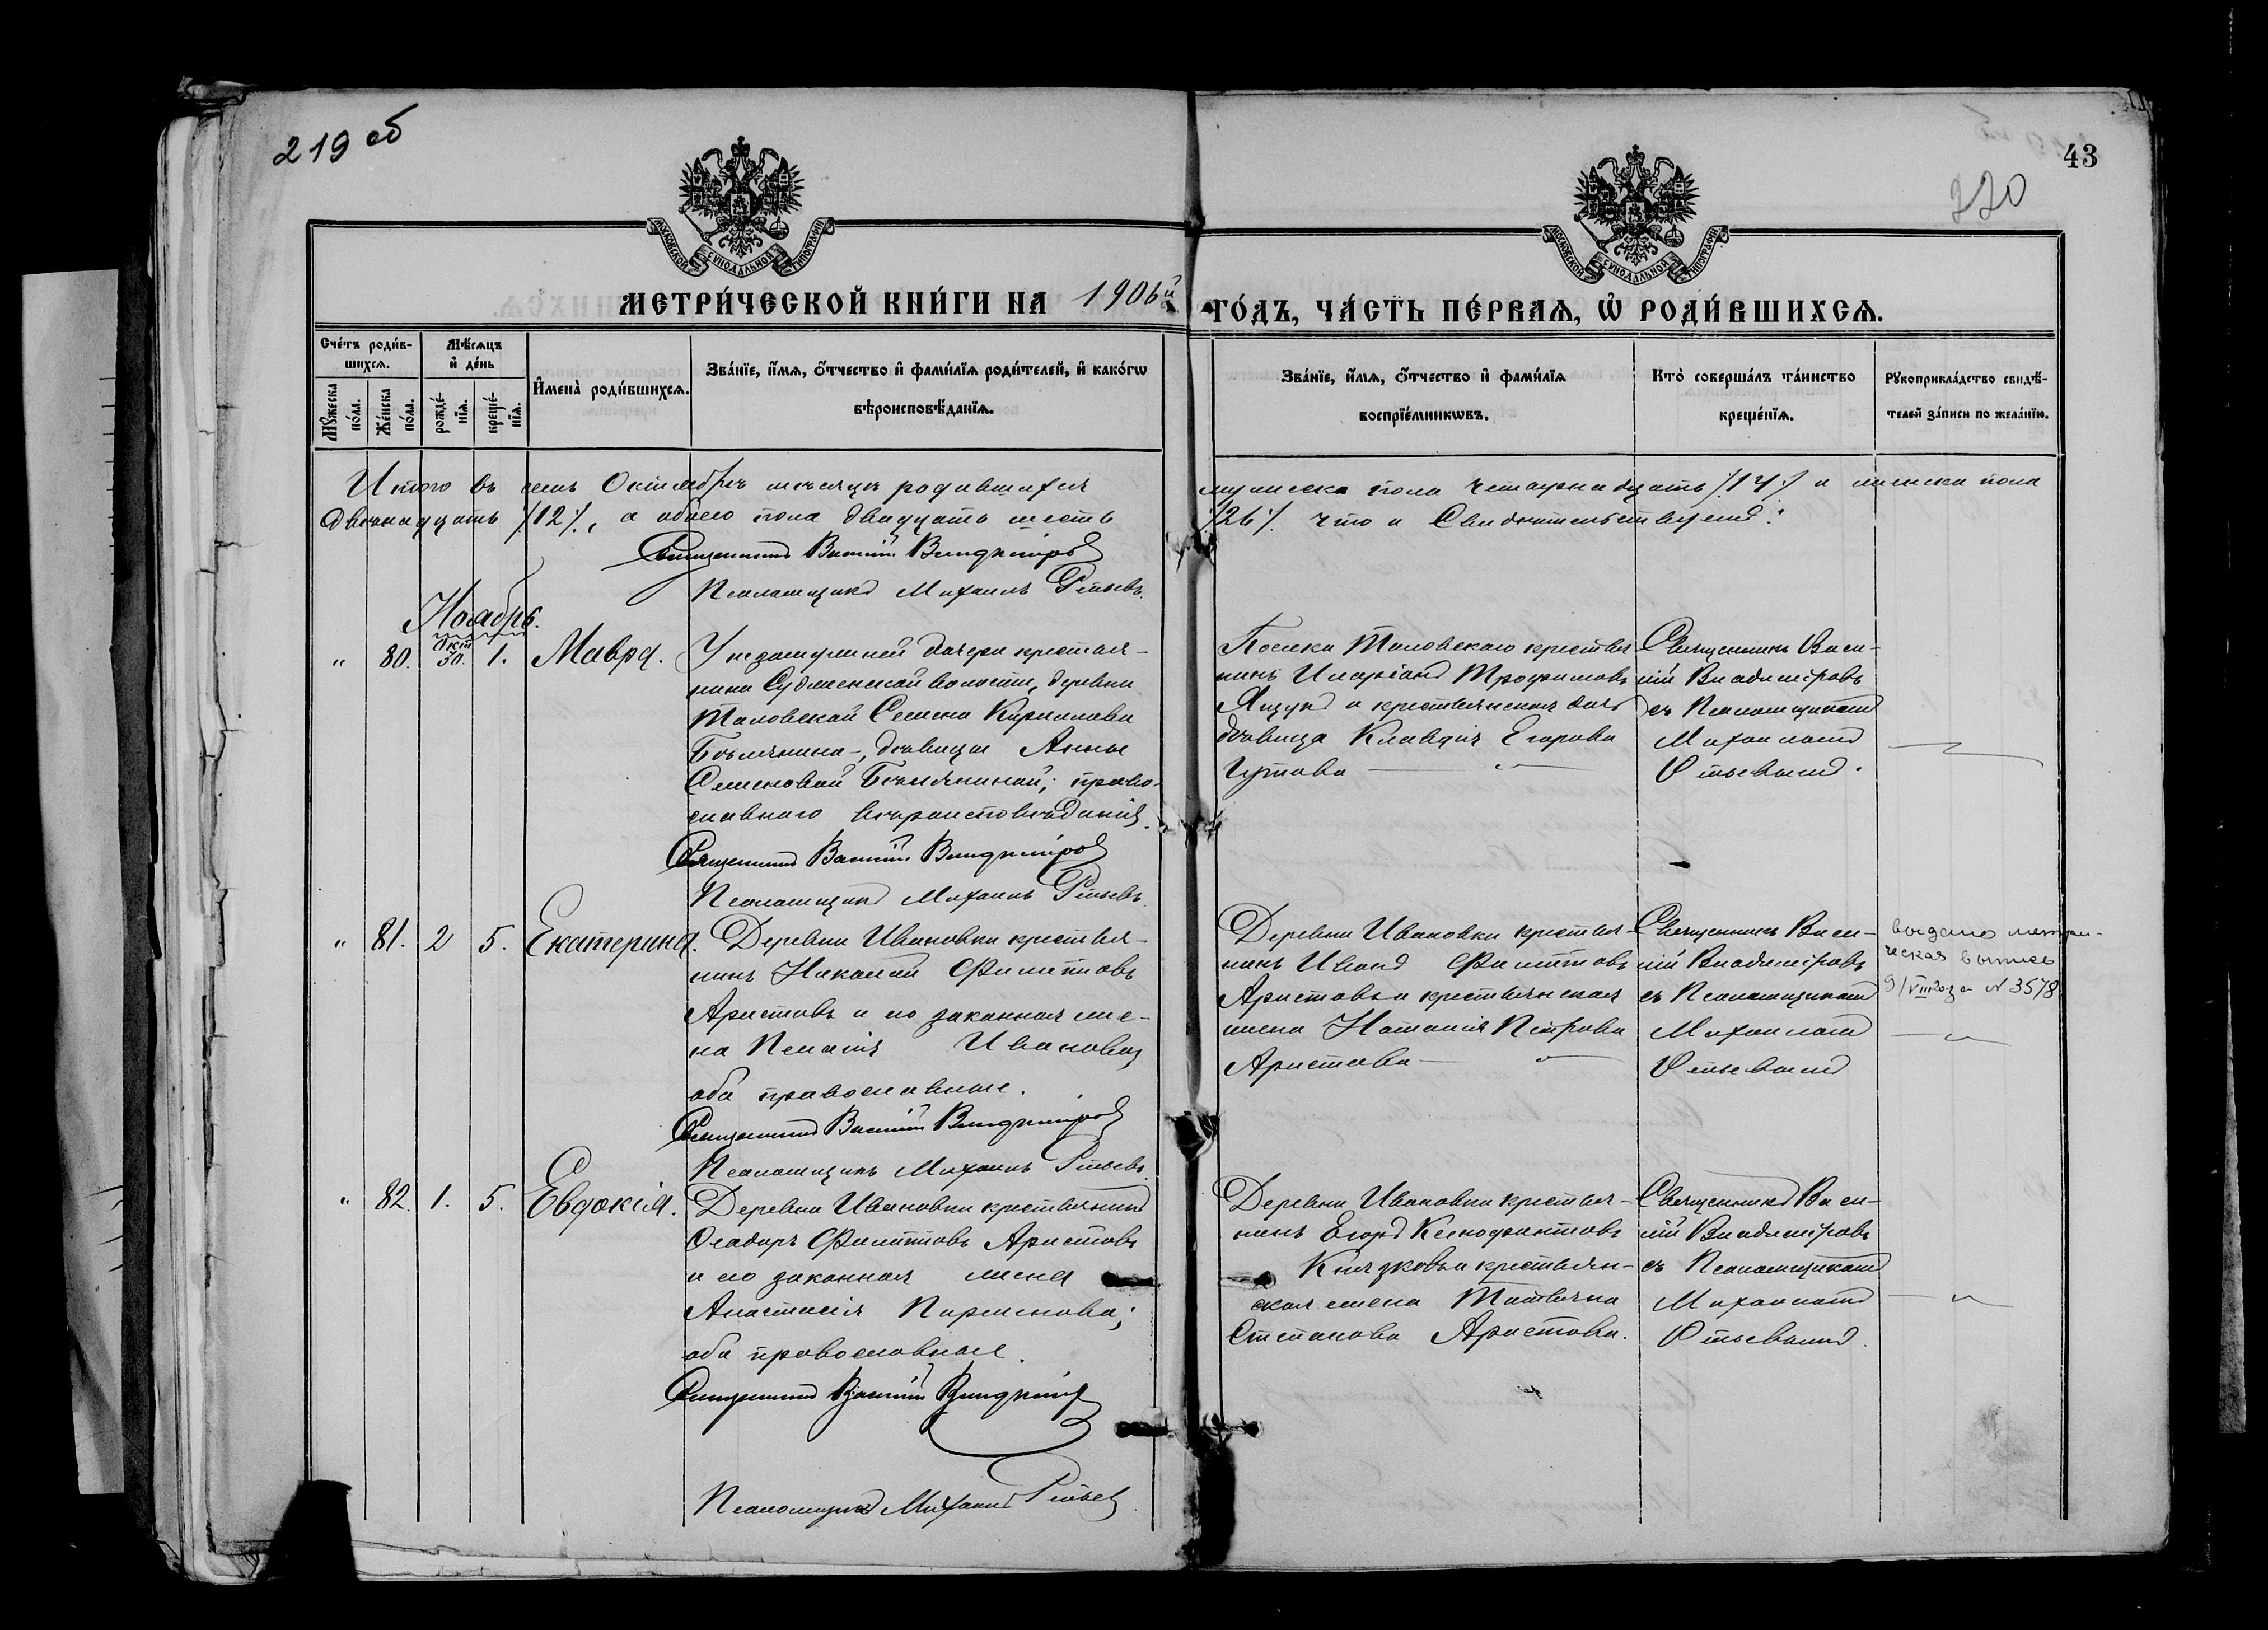 219 об
43
220
МОСКОВСКОЙ СУНОДАЛЬНОЙ ТИПОГРАФІИ
МОСКОВСКОЙ СУНОДАЛЬНОЙ ТИПОГРАФІИ
МЕТРИ́ЧЕСКОЙ КНИ́ГИ НА 1906й ГО́ДЪ, ЧА́СТЬ ПЕ́РВАЯ, Ѡ РОДИ́ВШИХСЯ.
Сче́тъ роди́в-
шихся.
Мѣ́сяцъ
и де́нь
Му́жеска
по́ла.
Же́нска
по́ла.
рожде́-
нїя.
креще́-
нїя.
Имена̀ роди́вшихся.
Зва́нїе, и́мя, о́тчество и фами́лїя роди́телей, и како́гѡ
вѣроисповѣ́данїя.
Зва́нїе, и́мя, о́тчество и фами́лїя
воспрїе́мникѡвъ.
Кто̀ соверша́лъ та́инство
креще́нїя.
Рукоприкла́дство свидѣ́-
телей за́писи по жела́нїю.
Итого въ семъ Октябрѣ мѣсяцѣ родившихся
двѣнадцать /12/, а обоего пола двадцать шесть
Священникъ Василій Владиміровъ
Псаломщикъ Михаилъ
мужеска пола четырнадцать /14/ и женска пола
/26/. Что и Свидѣтельствуемъ:
Ноябрь.
" 80. Окт 30. 1. Мавра.
У незамужней дочери крестья-
нина волости, деревни
Таловской Семена Кириллова
дѣвицы Анны
Семеновой православнаго вѣроисповѣданія.
Священникъ Василій Владиміровъ
Псаломщикъ Михаилъ
Поселка Таловскаго крестья-
нинъ Иларіонъ Трофимовъ
Яицунъ и крестьянская дочь
дѣвица Клавдія Егорова
Священникъ Васи-
лій Владиміровъ
съ Псаломщикомъ
Михаиломъ
" 81. 2 5. Екатерина.
Деревни Ивановки крестья-
нинъ Николай Филипповъ
Аристовъ и его законная же-
на Пелагія Иванова,
оба православные.
Священникъ Василій Владиміровъ
Псаломщикъ Михаилъ
Деревни Ивановки крестья-
нинъ Иванъ Филипповъ
Аристовъ и крестьянская
жена Наталія Петрова
Аристова
Священникъ Васи-
лій Владиміровъ
съ Псаломщикомъ
Михаиломъ
выдана метри-
ческая выпись
9/VIII 20 за № 3578
" 82. 1. 5. Евдокія.
Деревни Ивановки крестьянинъ
Ѳеодоръ Филипповъ Аристовъ
и его законная жена
Анастасія Парменова;
оба православные.
Священникъ Василій Владиміровъ
Псаломщикъ Михаилъ
Деревни Ивановки крестья-
нинъ Егоръ Ксенофонтовъ
Князковъ и крестьян-
ская жена Татьяна
Степанова Аристова.
Священникъ Васи-
лій Владиміровъ
съ Псаломщикомъ
Михаиломъ